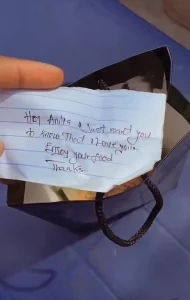 Hey Anita, I just want you
to know that I love you.
Enjoy your food
Thanks